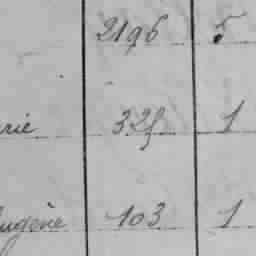 2196 5
rie 325 1
ugène 103 1